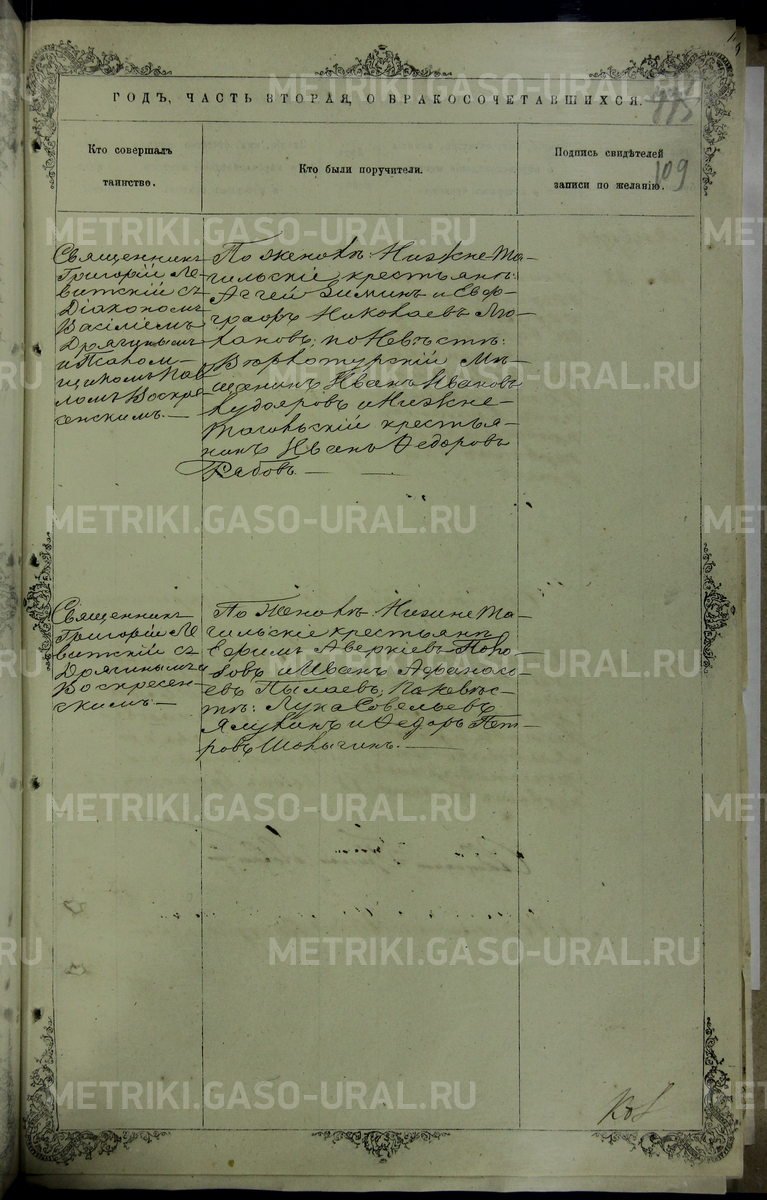 ГОДЪ, ЧАСТЬ ВТОРАЯ, О БРАКОСОЧЕТАВШИХСЯ.
109
Кто совершалъ
таинство.
Кто были поручители.
Подпись свидѣтелей
записи по желанію.
Священникъ
Григорій Ле-
витскій съ
Діакономъ
Василіемъ
Дрягинымъ
и Псалом-
щикомъ Пав-
ломъ Воскре-
сенскимъ.
По женихѣ: Нижне-Та-
гильскіе крестьяне:
Аггей Зиминъ и Евф-
графъ Николаевъ
по Невѣстѣ:
Верхотурскій Мѣ-
щанинъ Иванъ Ивановъ
Кудояровъ и Нижне-
Тагильскій крестья-
нинъ Иванъ Ѳедоровъ
Рабовъ
Священникъ
Григорій Ле-
витскій съ
Дрягинымъ и
Воскресен-
скимъ.
По Женихѣ: Нижне Та-
гильскіе крестьяне
Ефимъ Аверкіевъ
и Иванъ Афанась-
евъ Пылаевъ; по невѣс-
тѣ: Лука Савельевъ
и Ѳедоръ Пет-
ровъ
METRIKI.GASO-URAL.RU